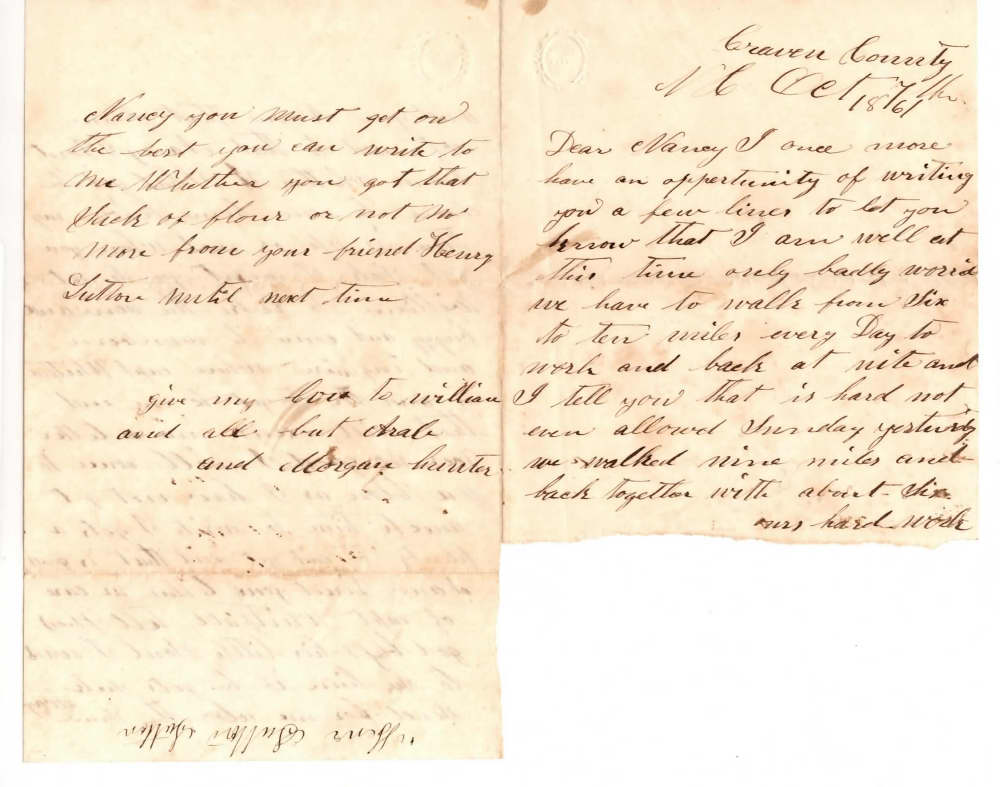 Craven County
N C Oct 7th
1861
Dear Nancy I once more
have an oppertunity of writing
you a few lines to let you
know that I am well at
this time only badly worid
we have to walk from Six
to ten miles every Day to
work and back at nite and
I tell you that is hard not
even allowd Sunday yesturdy
we walked nine miles and
back together with about Six
ours hard work
Nancy you must get on
the best you can write to
me Whether you got that
Sack of flour or not No
more from your friend Henry
Sutton until next time
give my love to william
and all but
and Morgan hunter
Sutton Sutton